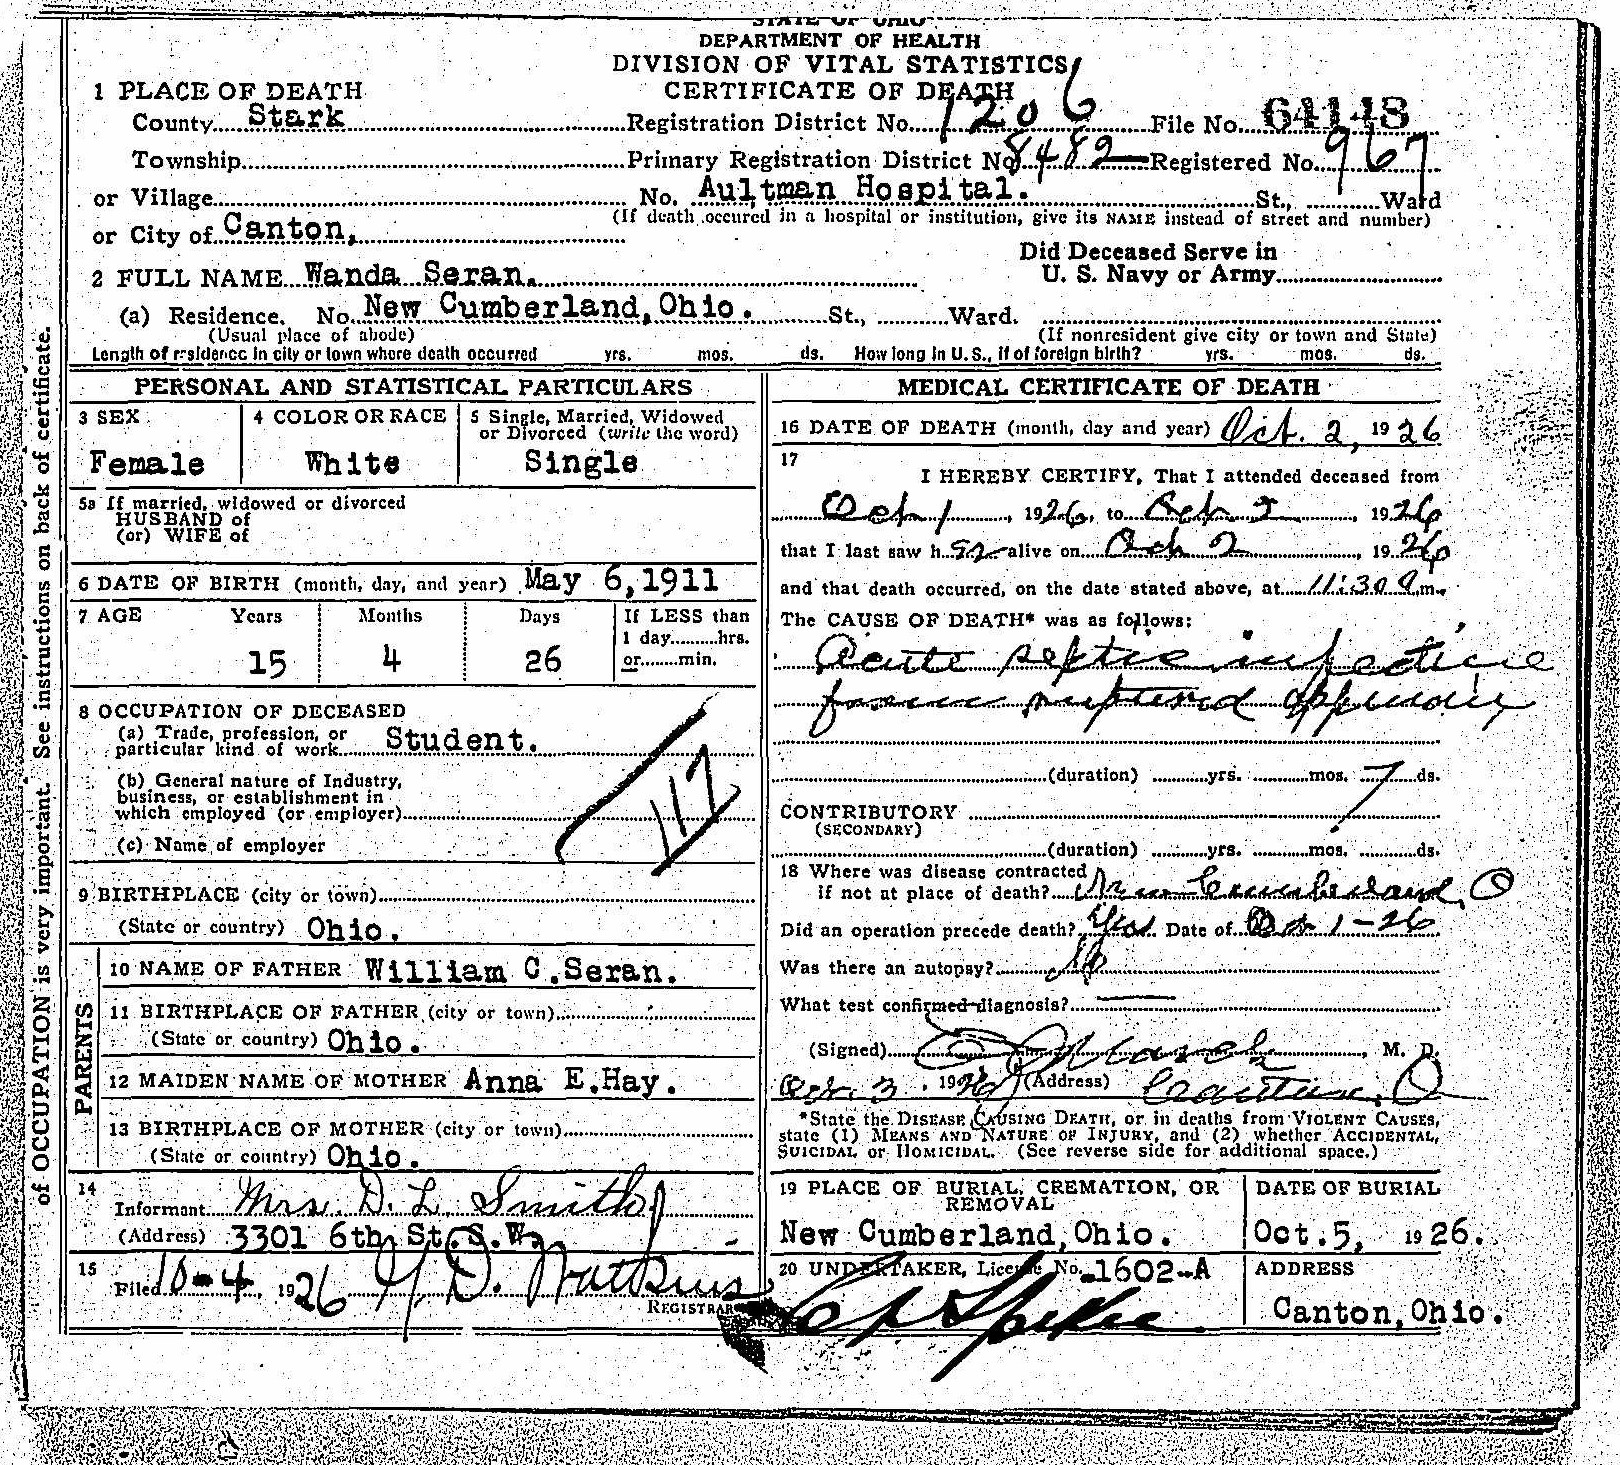 STATE OF OHIO
DEPARTMENT OF HEALTH
DIVISION OF VITAL STATISTICS
CERTIFICATE OF DEATH
1 PLACE OF DEATH
County Stark Registration District No. 1206 File No. 64148
Township Primary Registration District No. 8482 Registered No. 967
or Village No. Aultman Hospital. St., Ward
(If death occured in a hospital or institution, give its NAME instead of street and number)
or City of Canton,
Did Deceased Serve in
U. S. Navy or Army
2 FULL NAME Wanda Seran.
(a) Residence. No. New Cumberland, Ohio. St., Ward.
(Usual place of abode) (If nonresident give city or town and State)
Length of residence in city or town where death occurred yrs. mos. ds. How long in U. S., if of foreign birth? yrs. mos. ds.
of OCCUPATION is very important. See instructions on back of certificate.
PERSONAL AND STATISTICAL PARTICULARS
3 SEX 4 COLOR OR RACE 5 Single, Married, Widowed
or Divorced (write the word)
Female White Single
5a If married, widowed or divorced
HUSBAND of
(or) WIFE of
6 DATE OF BIRTH (month, day, and year) May 6, 1911
7 AGE Years Months Days If LESS than
1 day hrs.
15 4 26 or min.
8 OCCUPATION OF DECEASED
(a) Trade, profession, or
particular kind of work Student.
(b) General nature of Industry,
business, or establishment in
which employed (or employer)
(c) Name of employer
117
9 BIRTHPLACE (city or town)
(State or country) Ohio.
PARENTS
10 NAME OF FATHER William C. Seran.
11 BIRTHPLACE OF FATHER (city or town)
(State or country) Ohio.
12 MAIDEN NAME OF MOTHER Anna E. Hay.
13 BIRTHPLACE OF MOTHER (city or town)
(State or country) Ohio.
14
Informant Mrs. D. L. Smith
(Address) 3301 6th St. S.W.
15
Filed 10-4, 1926 D. Watkins
REGISTRAR
MEDICAL CERTIFICATE OF DEATH
16 DATE OF DEATH (month, day and year) Oct. 2, 1926
17
I HEREBY CERTIFY, That I attended deceased from
Oct 1, 1926, to Oct 2, 1926
that I last saw her alive on Oct 2, 1926
and that death occurred, on the date stated above, at 11:30 m.
The CAUSE OF DEATH* was as follows:
Acute septic infection
from ruptured appendix
(duration) yrs. mos. 7 ds.
CONTRIBUTORY
(SECONDARY)
(duration) yrs. mos. ds.
18 Where was disease contracted
if not at place of death? New Cumberland, O
Did an operation precede death? Yes. Date of Oct 1-26
Was there an autopsy? No
What test confirmed diagnosis?
(Signed) March, M. D.
Oct. 3, 1926 (Address) Canton, O
*State the DISEASE CAUSING DEATH, or in deaths from VIOLENT CAUSES,
state (1) MEANS AND NATURE OF INJURY, and (2) whether ACCIDENTAL,
SUICIDAL or HOMICIDAL. (See reverse side for additional space.)
19 PLACE OF BURIAL, CREMATION, OR
REMOVAL
DATE OF BURIAL
New Cumberland, Ohio. Oct. 5, 1926.
20 UNDERTAKER, License No. 1602-A ADDRESS
Canton, Ohio.